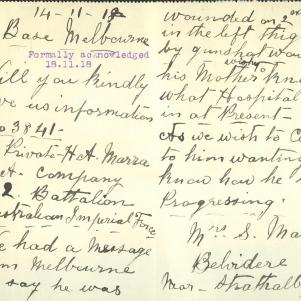 14-11-18
Base Melbourne
Formally acknowledged
18.11.18
ill you kindly
ve us information
o 3841-
Private H.A. Marra
A. Company
2 Battalion
stralian Imperial Force
e had a message
m Melbourne
say he was
wounded on 2
in the left thig
by gunshot wou
his Mother wishes know
what Hospital
in at Present
As we wish to c
to him wanting
know how he i
Progressing.
Mrs S. Ma
Belvidere
near Strathalb